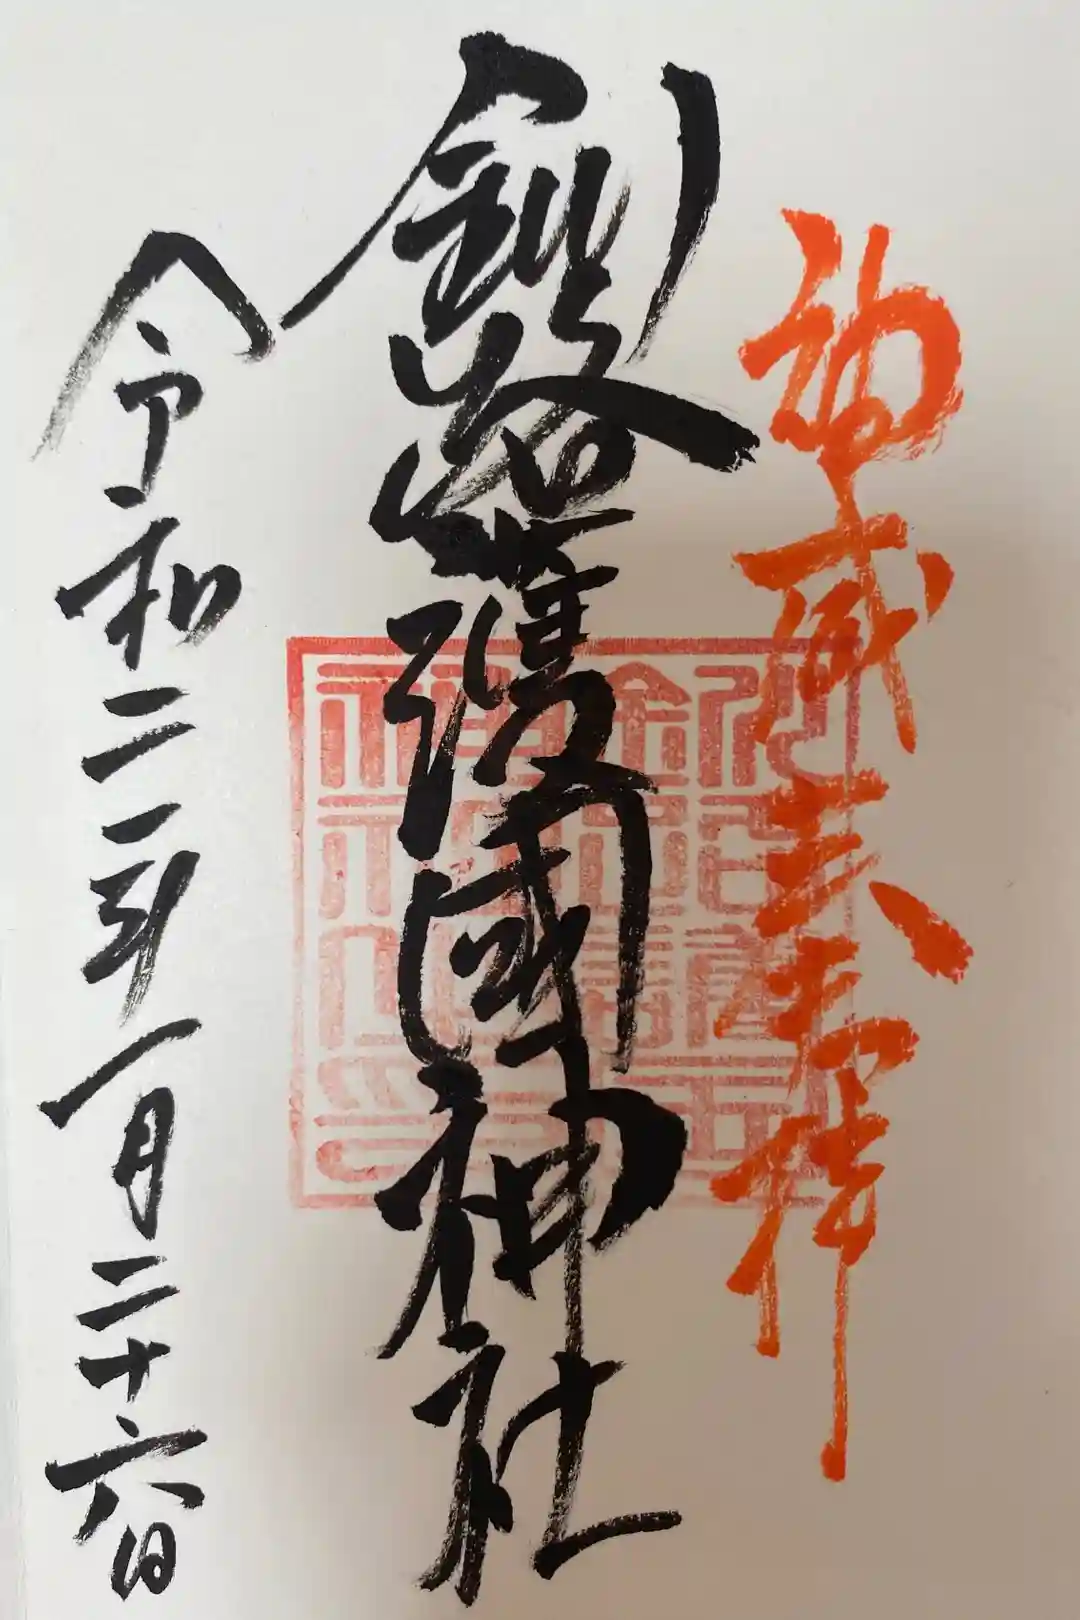 神威奉拝
釧路護國神社
令和二年一月二十六日
釧路護國
神社之印